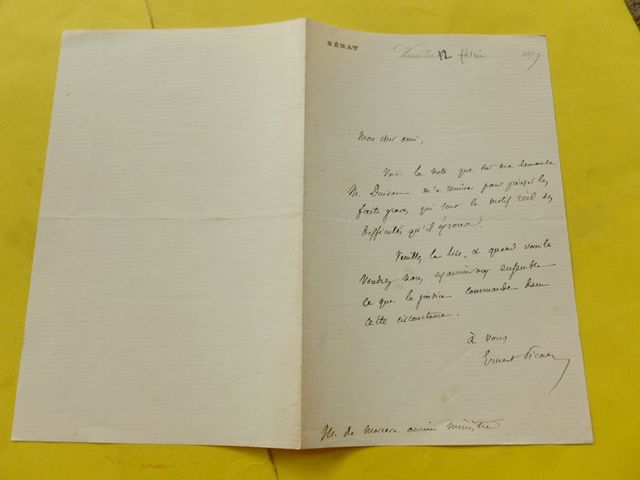 SÉNAT
Versailles 12 février 1879
Mon cher ami,
Voici la note que sur ma demande
M. m'a remise pour préciser les
faits graves qui sont le motif réel des
difficultés qu'il éprouve.
Veuillez la lire, & quand vous le
voudrez nous examinerons ensemble
ce que la justice commande dans
cette circonstance.
à vous
Ernest Picard
M. de Marcère ancien ministre